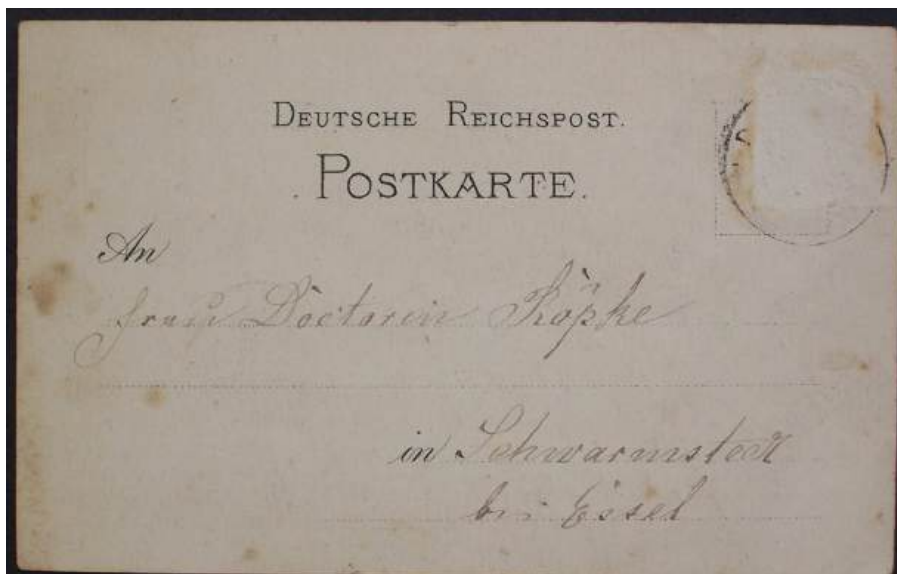 DEUTSCHE REICHSPOST.
POSTKARTE.
An
Frau Doctorin Köpke
in Schwarmstedt
bei Essel